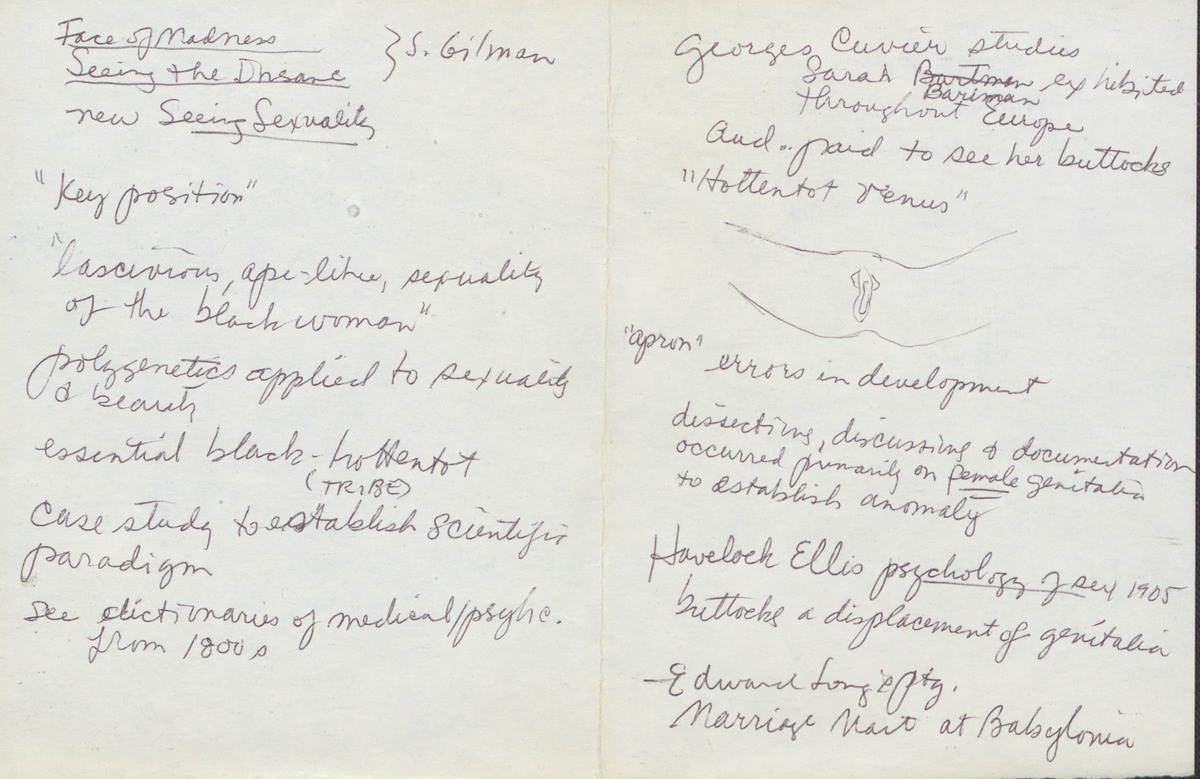 Face of Madness
Seeing the Insane
} S. Gilman
new Seeing Sexuality
"Key position"
"lascivious, ape-like, sexuality
of the black woman"
polygenetics applied to sexuality
& beauty
essential black - hottentot
(TRIBE)
case study to establish scientific
paradigm
see dictionaries of medical/psyhc.
from 1800s
Georges Cuvier studies
Sarah Bartman exhibited
Bartman
throughout Europe
Aud.. paid to see her buttocks
"Hottentot Venus"
"apron"
errors in development
dissecting, discussing & documentation
occurred primarily on female genitalia
to establish anomaly
Havelock Ellis psychology of sex 1905
buttocks a displacement of genitalia
- Edward Long's ptg.
Marriage Mart at Babylonia